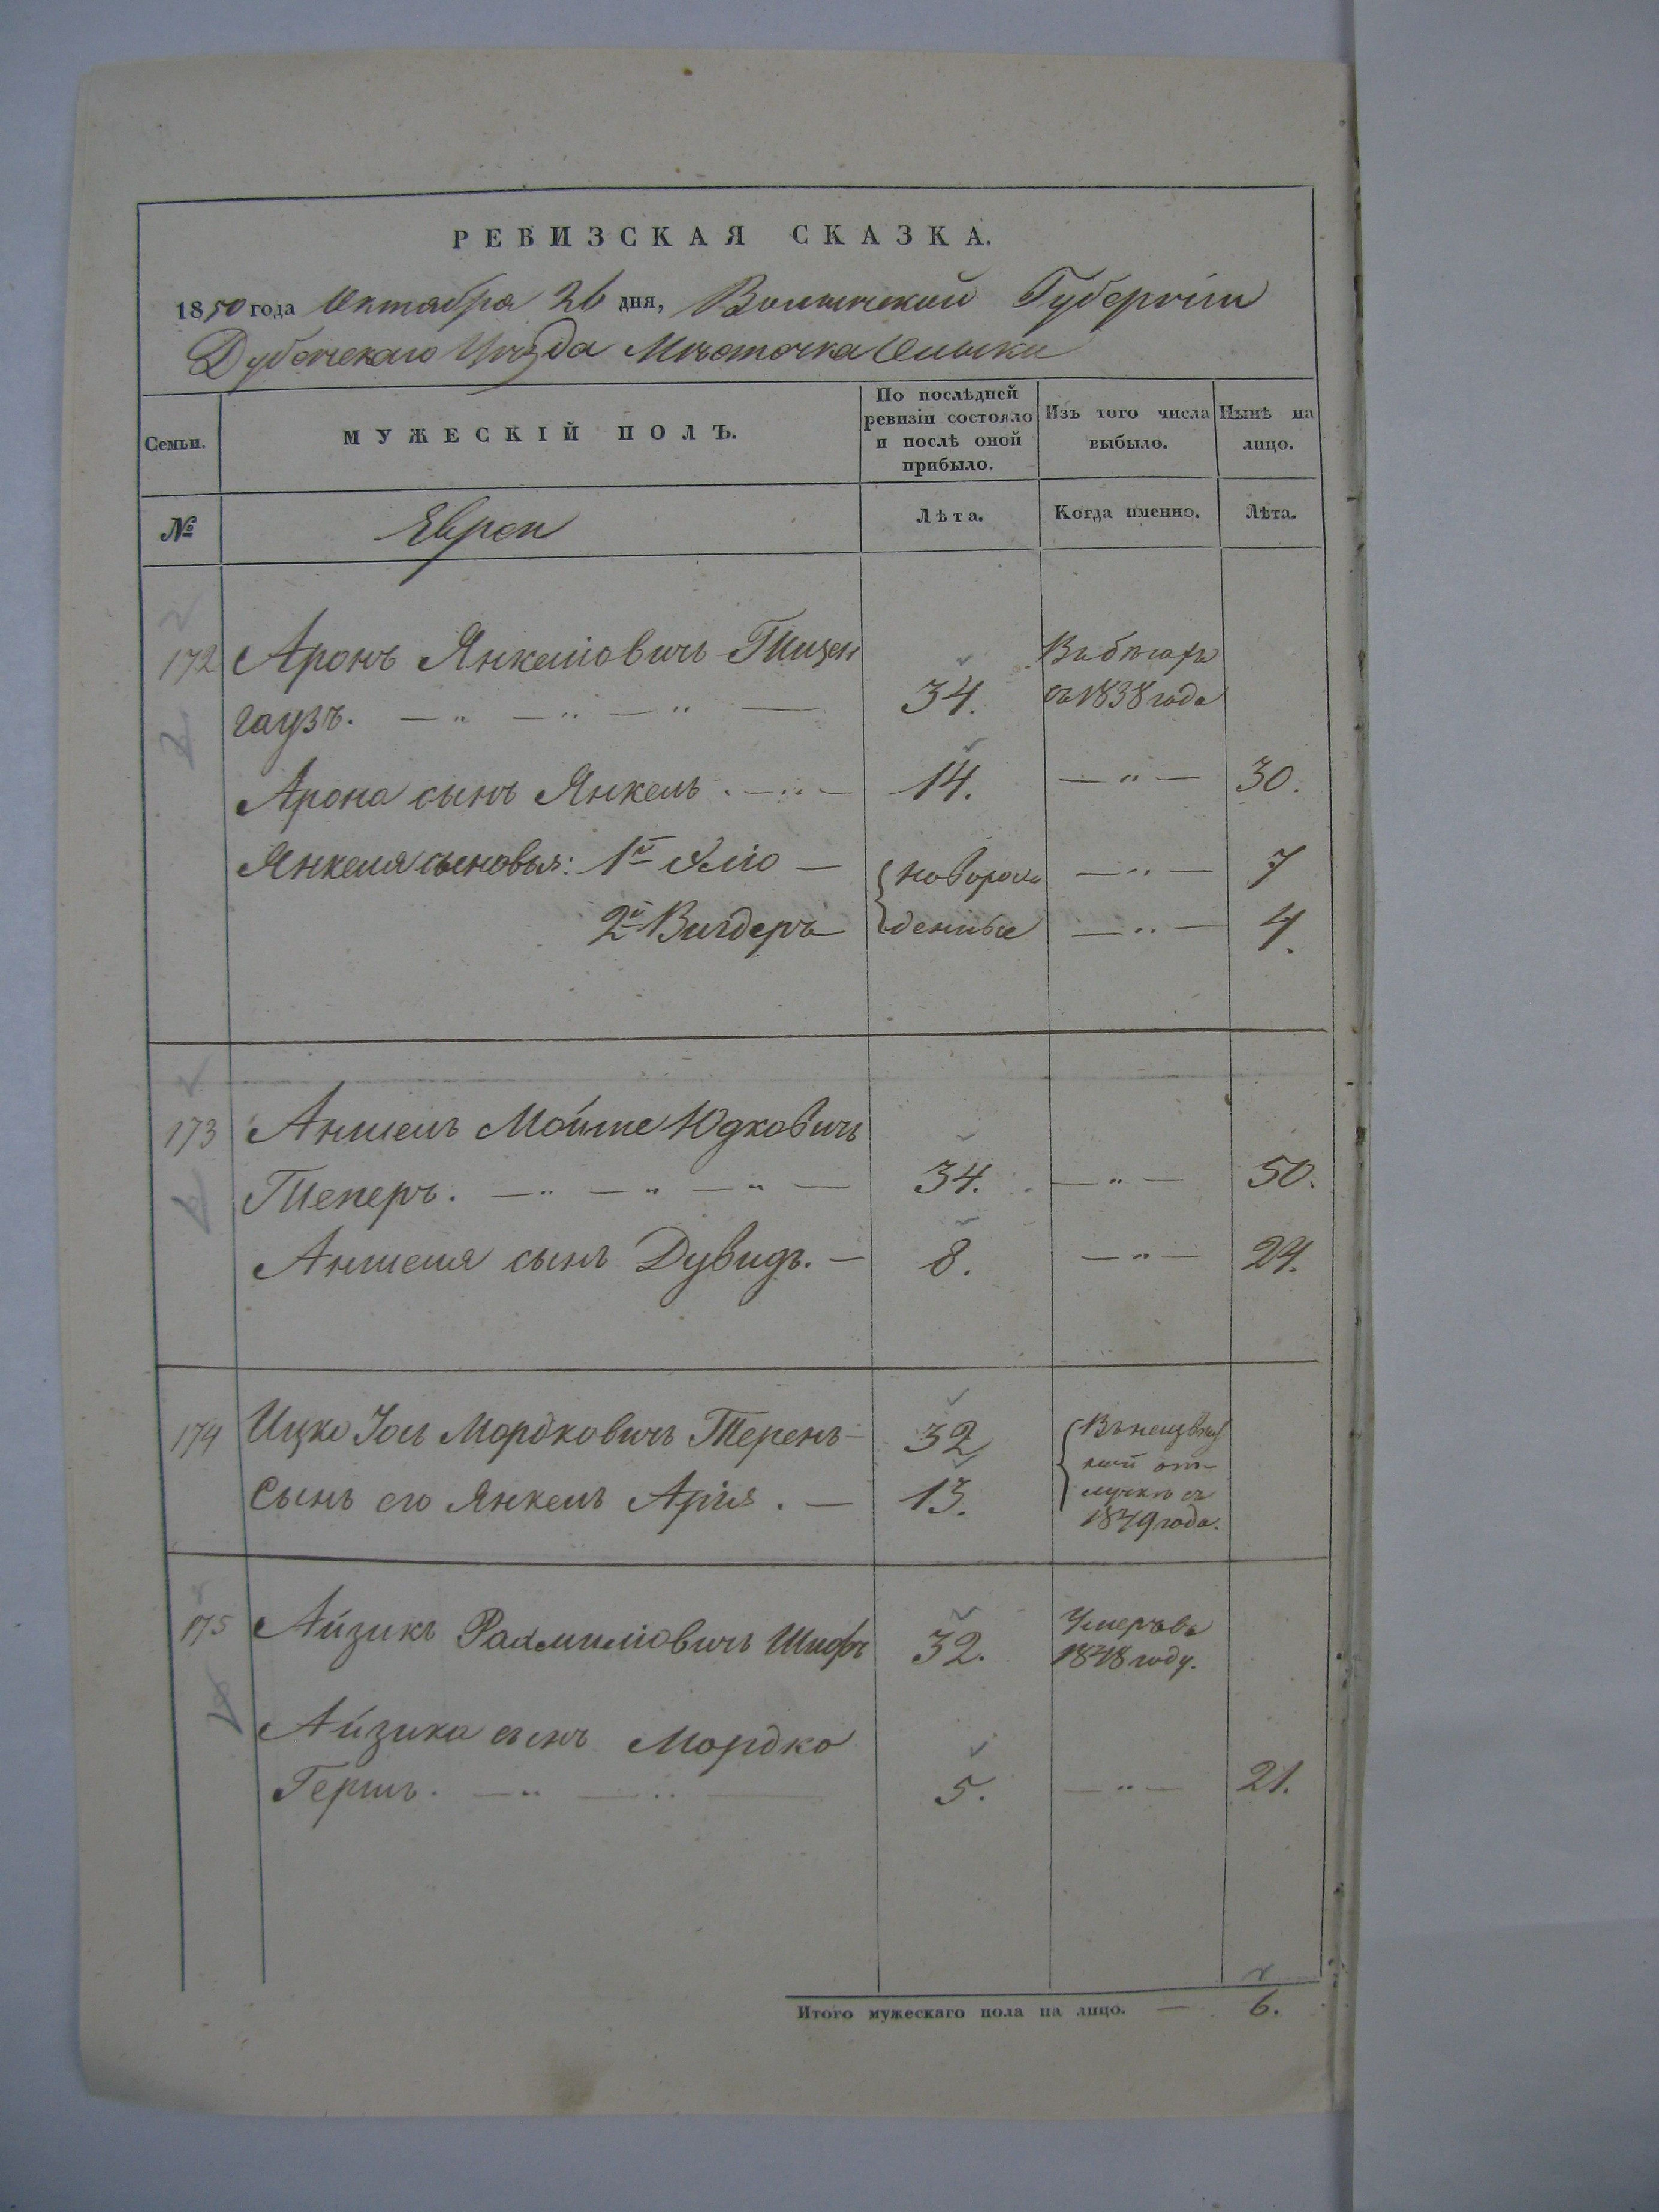 РЕВИЗСКАЯ СКАЗКА.
1850 года Октября 26 дня, Волынской Губерніи
Дубенскаго Уѣзда Мѣстечка Олыки
Семьи.
МУЖЕСКІЙ ПОЛЪ.
По послѣдней ревизіи состояло и послѣ оной прибыло.
Изъ того числа выбыло.
Нынѣ на лицо.
№
Евреи
Лѣта.
Когда именно.
Лѣта.
172 Аронъ Янкеліовичъ Тицен
гаузъ. — " — " — " — 34. Въ бѣгахъ съ 1838 года
Арона сынъ Янкель . — " — 14. — " — 30.
Янкеля сыновья: 1й Эліо — новорож — " — 7
2й Вигдеръ денные — " — 4.
173 Аншель Мойше Юдковичъ
Теперъ. — " — " — " — 34. — " — 50.
Аншеля сынъ Дувидъ. — 8. — " — 24.
174 Ицко Іось Мордковичъ Теренъ — 32 Въ неизвѣст
ной от-
Сынъ его Янкель Арія . — 13. лучкѣ съ
1849 года.
175 Айзикъ Рахмиліовичъ Шифъ 32. Умеръ въ
1848 году.
Айзика сынъ Мордко
Гершъ. — " — " — 5. — " — 21.
Итого мужескаго пола на лицо. — 6.